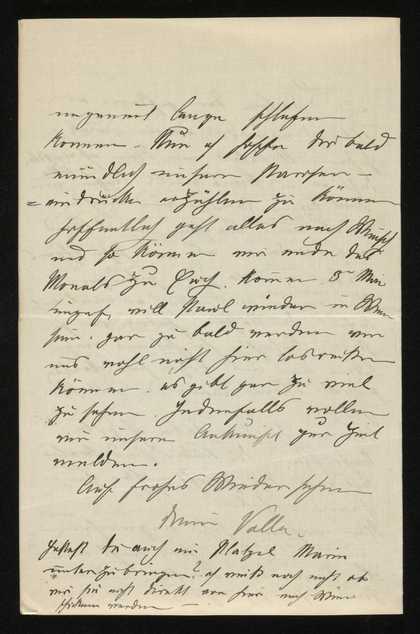 ungemeint lange schlafen
können. Nun ich hoffe dir bald
mündlich unsere
eindrücke erzählen zu können
hoffentlich geht alles nach Wunsch
und so können wir ende des
Monats zu Euch kommen 5 Mai
will Paul wieder in Wien
sein. gar zu bald werden wir
uns wohl nicht hier losreißen
können. es gibt gar zu viel
zu sehen. Jedenfalls wollen
wir unsere Ankunft zur Zeit
melden.
Auf frohes Wiedersehen
Deine Valla.
Hättest du auch ein Platzel Marie
unterzubringen? ich weiß noch nicht ob
wir sie nicht direkt von hier nach Wien
schicken werden —